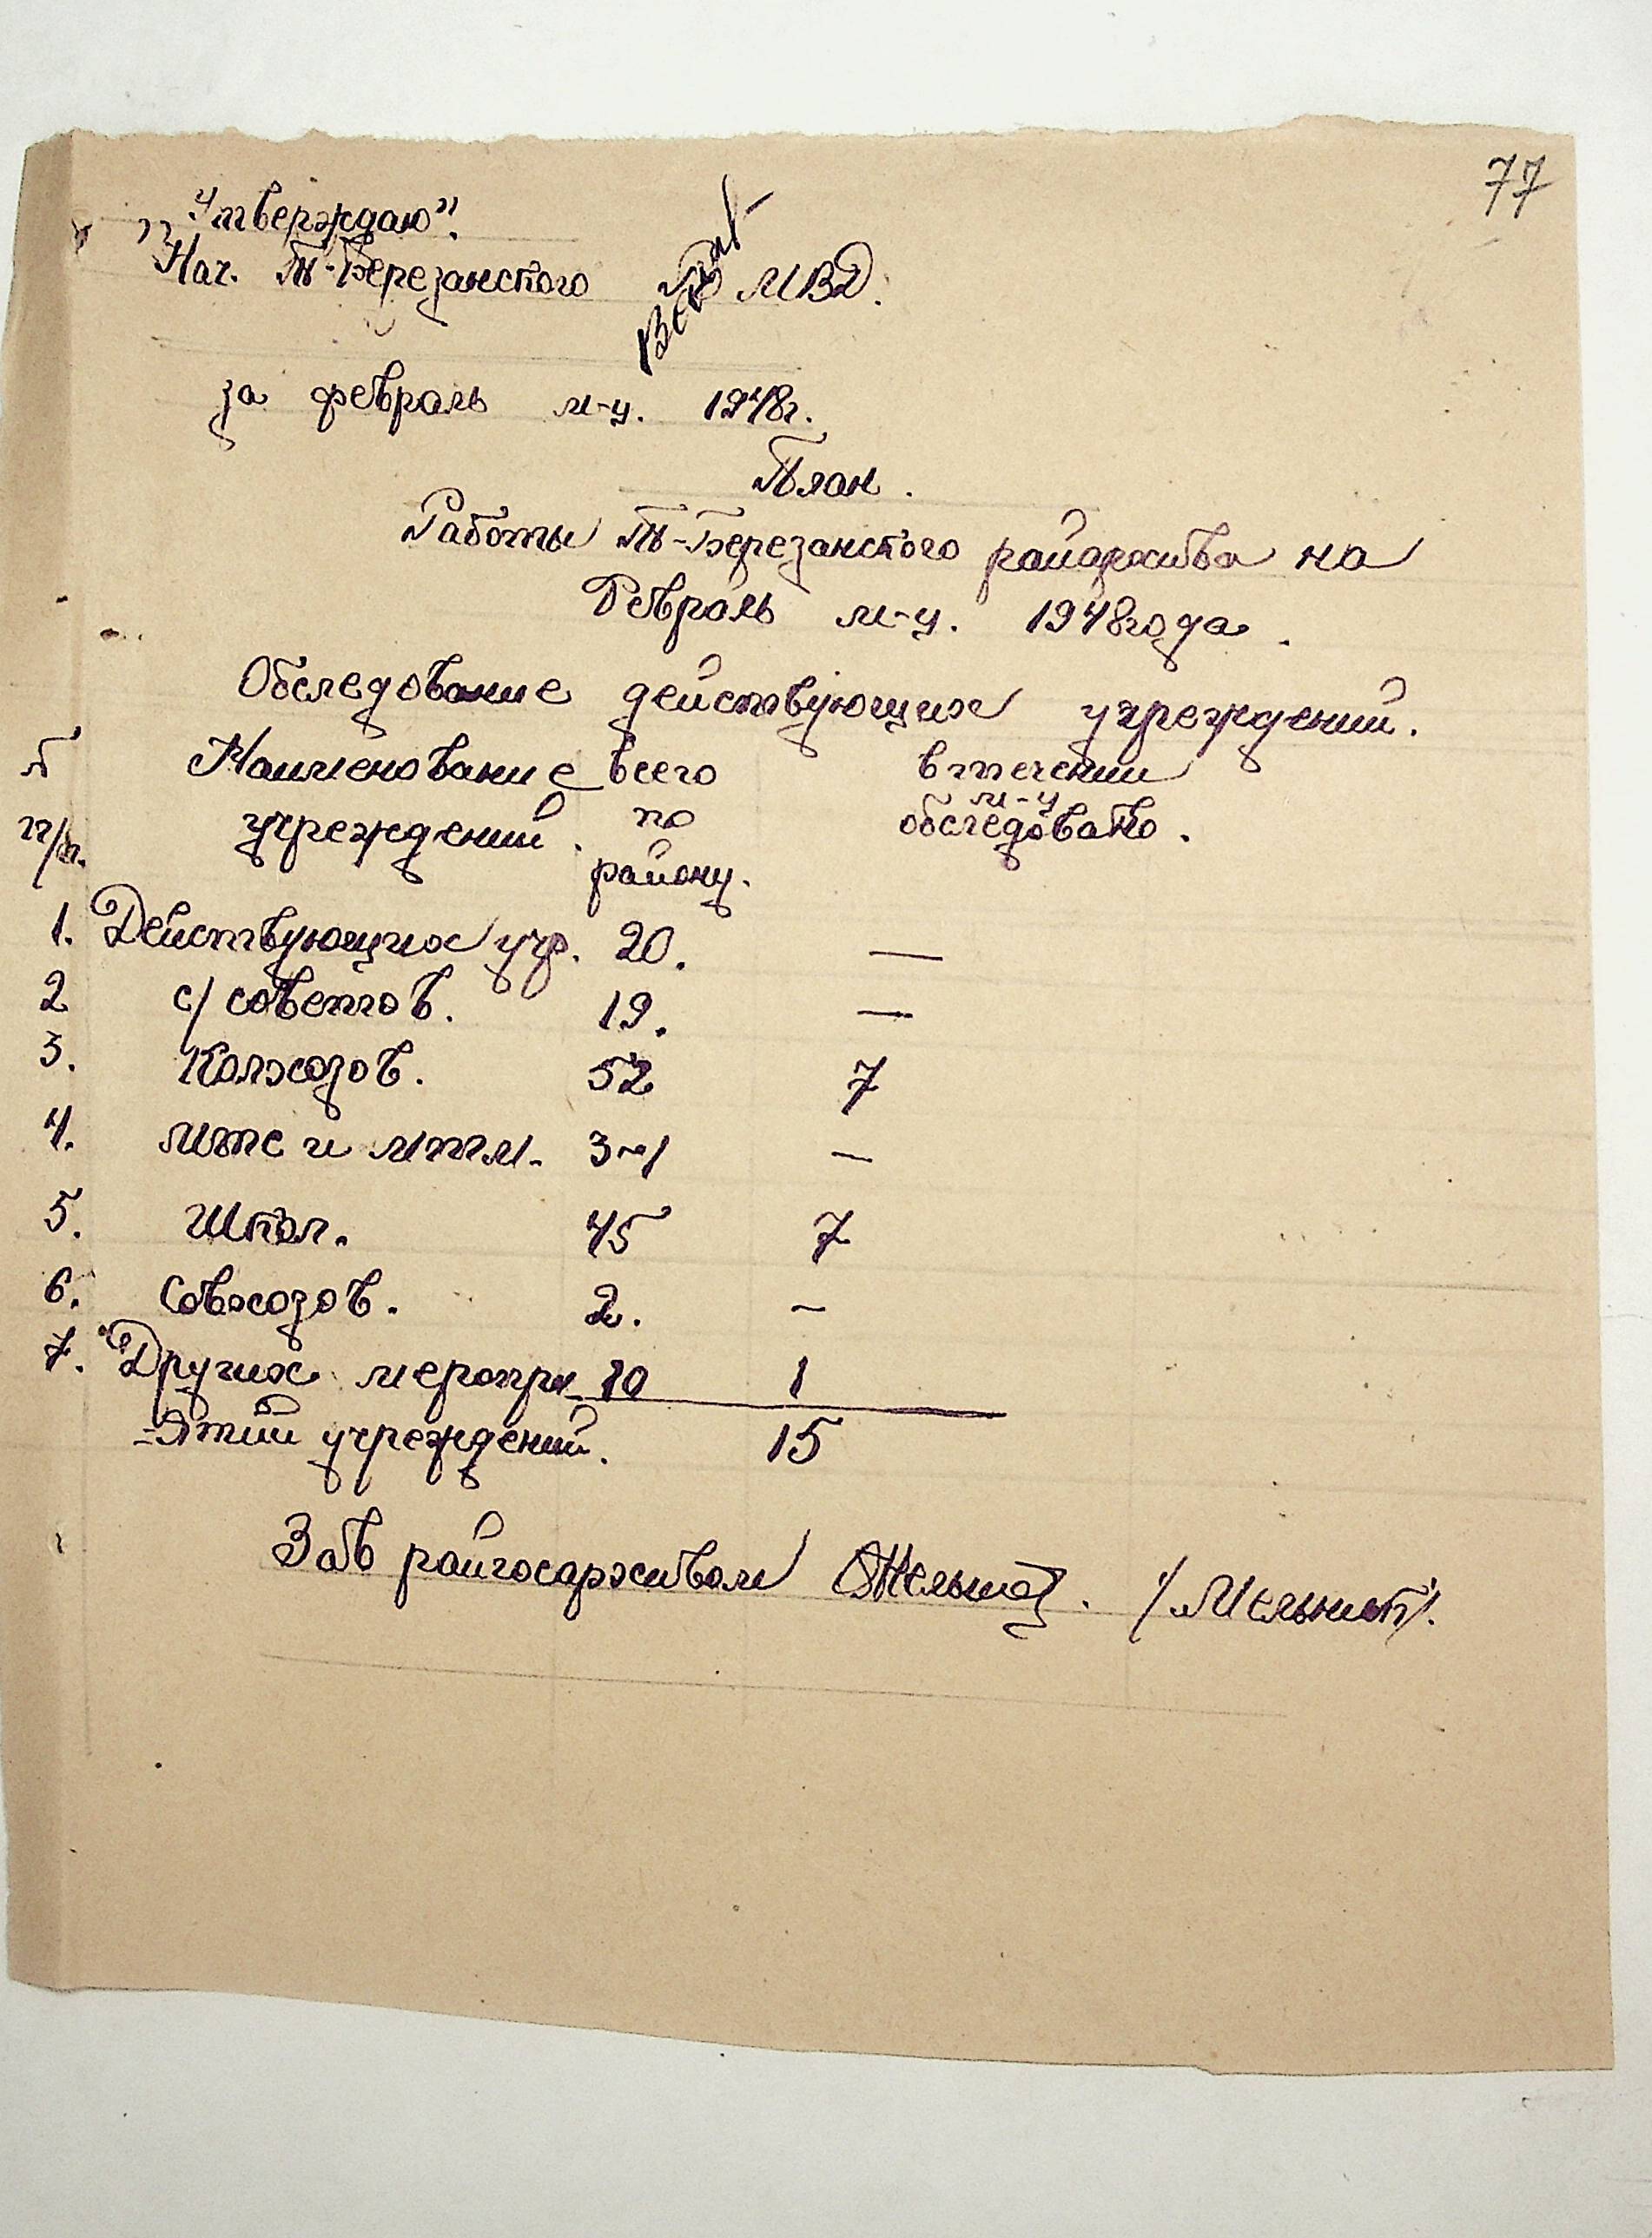 77
„Утверждаю".
Нач. Т-Березанского РО МВД.
за февраль м-ц. 1948г.
План.
Работы Т-Березанского райархива на
Февраль м-ц. 1948года.
Обследование действующих учреждений.
Наименование всего в течении
м-ц
учреждений. по обследовано.
п/п. району.
1. Действующих учр. 20. —
2 с/советов. 19. —
3. Колхозов. 52 7
4. мтс и мтм. 3-1 —
5. Школ. 45 7
6. Совхозов. 2. —
7. Других меропри- 10 1
-ятий учреждений. 15
Зав райгосархивом /Мельник/.